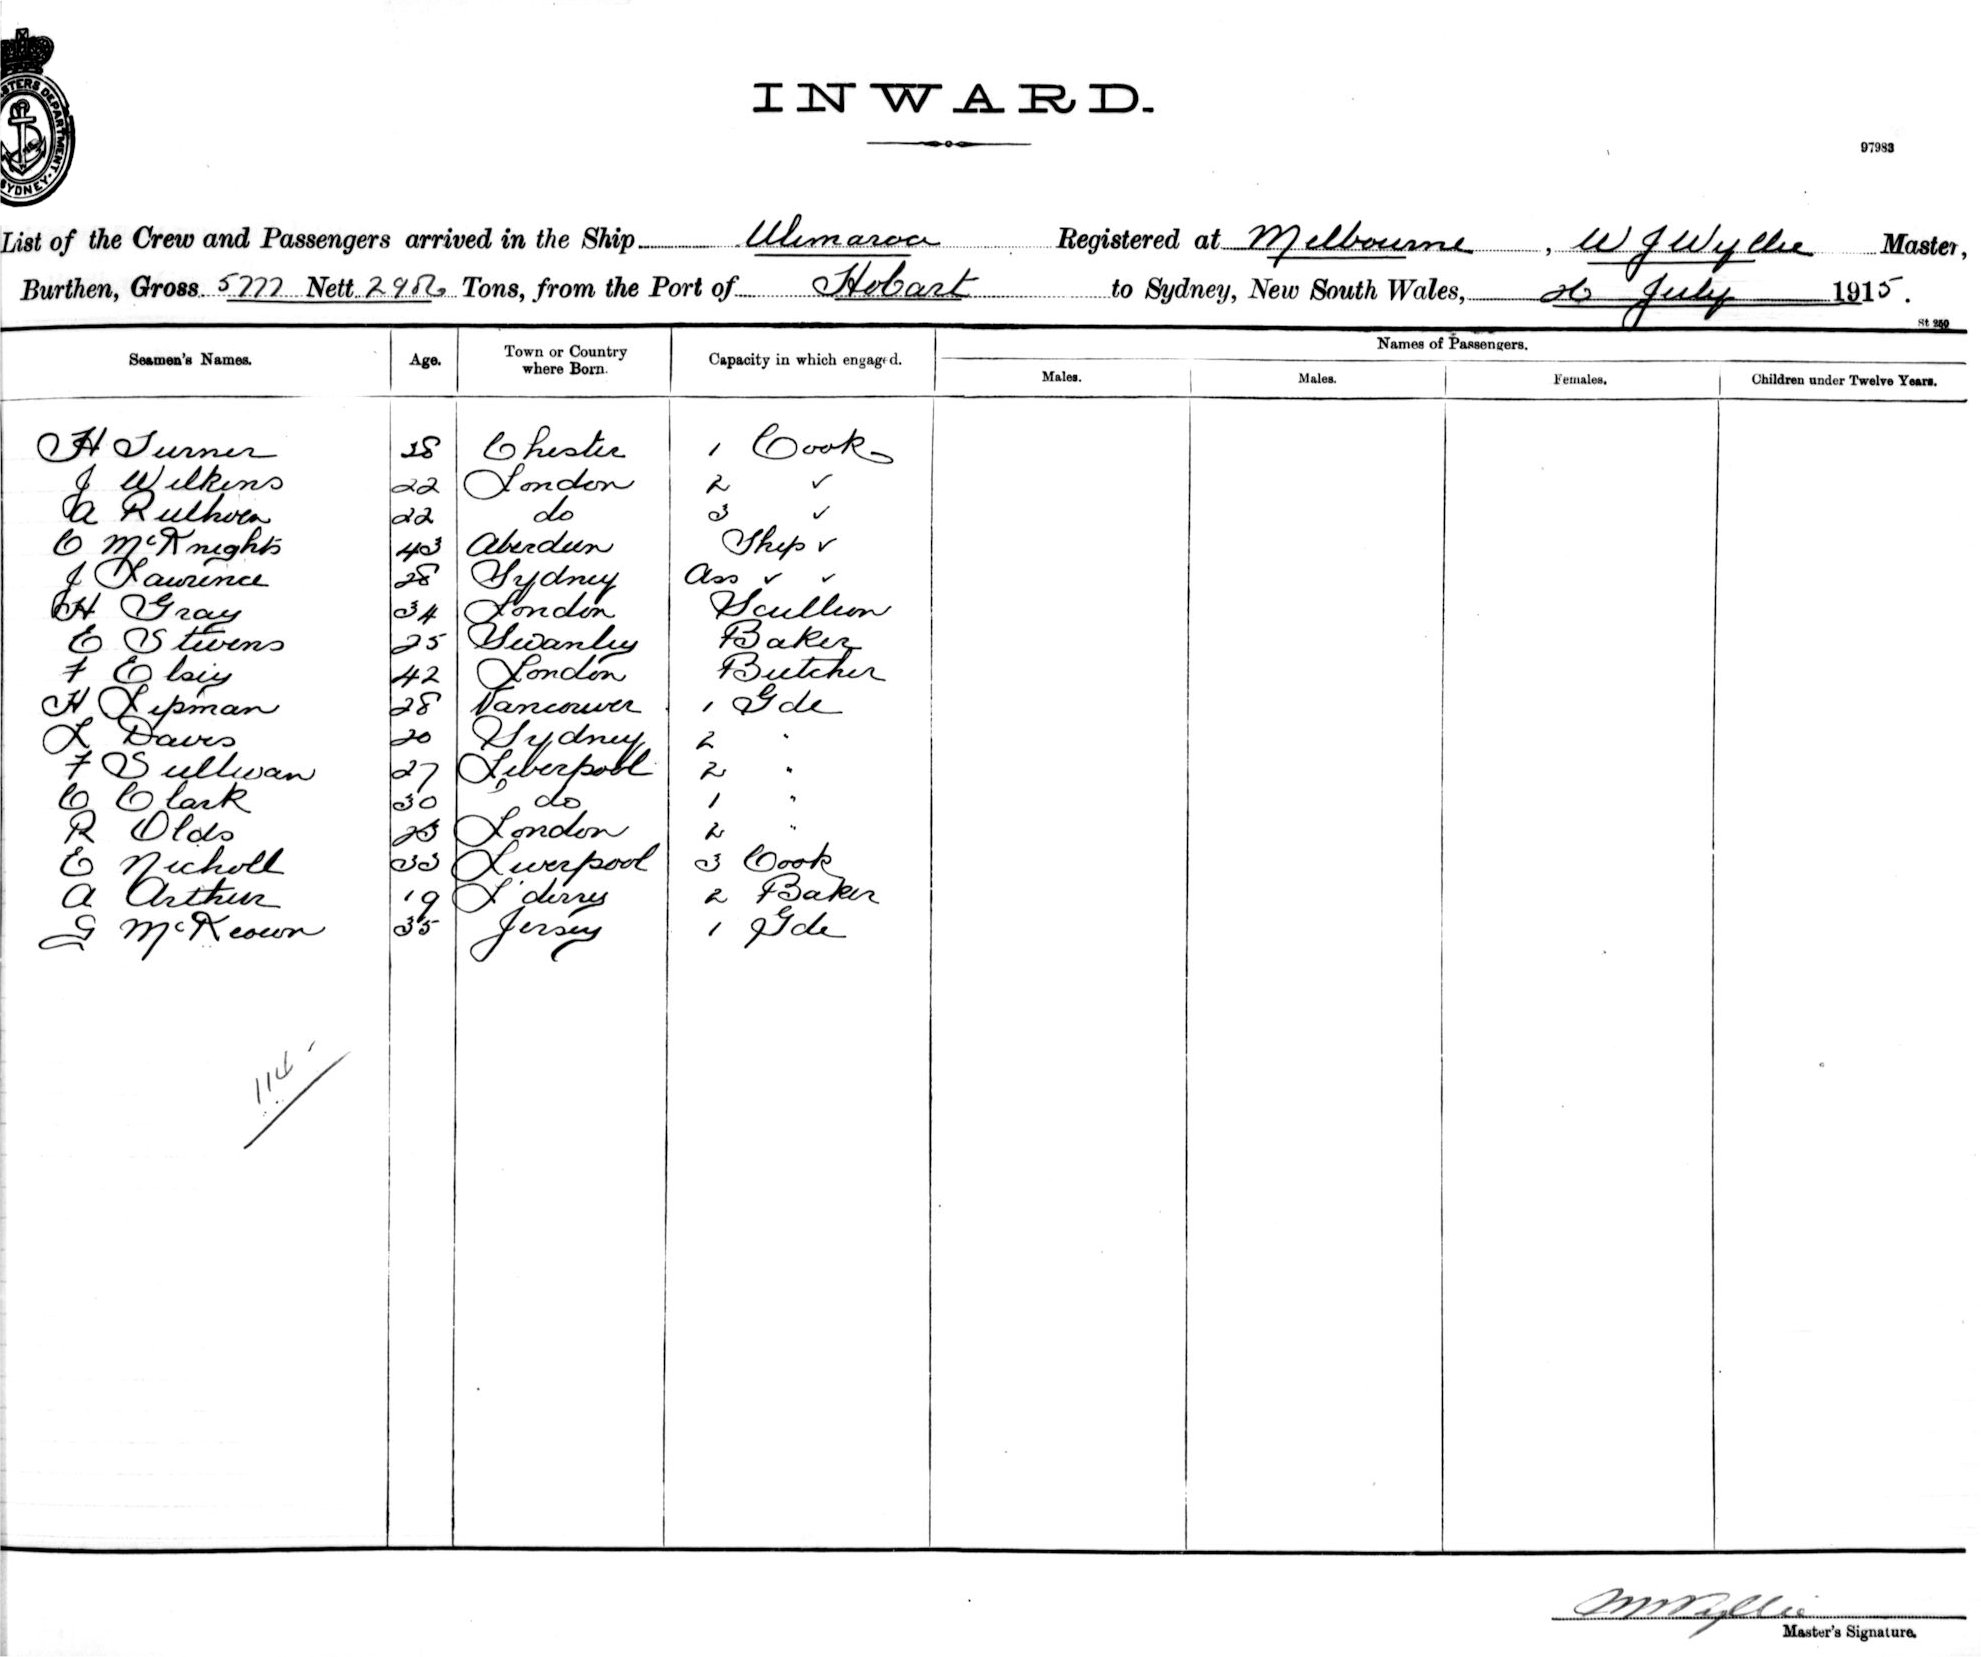 STERS DEPARTMENT.
SYDNEY.
INWARD.
97983
List of the Crew and Passengers arrived in the Ship Ulimaroa Registered at Melbourne, W J Wyllie Master,
Burthen, Gross 5777 Nett Tons, from the Port of Hobart to Sydney, New South Wales, 26 July 1915.
St 250
Seamen's Names. Age. Town or Country where Born. Capacity in which engaged. Names of Passengers.
Males. Males. Females. Children under Twelve Years.
H Turner Chester 1 Cook
J Wilkins 22 London 2 ✓
A Ruthven 22 do 3 ✓
C McKnights 43 Aberdeen Ship ✓
J Lawrence 28 Sydney Ass ✓ ✓
H Gray 34 London Scullion
E Stevens 25 Swanley Baker
F Elsiy 42 London Butcher
H Lipman 28 Vancouver 1 Gde
L Davis 20 Sydney 2 "
F Sullivan 27 Liverpool 2 "
C Clark 30 do 1 "
R Olds 23 London 2 "
E Nicholl 33 Liverpool 3 Cook
A Arthur 19 L'derry 2 Baker
G McKeown 35 Jersey 1 Gde
114
WJWyllie
Master's Signature.